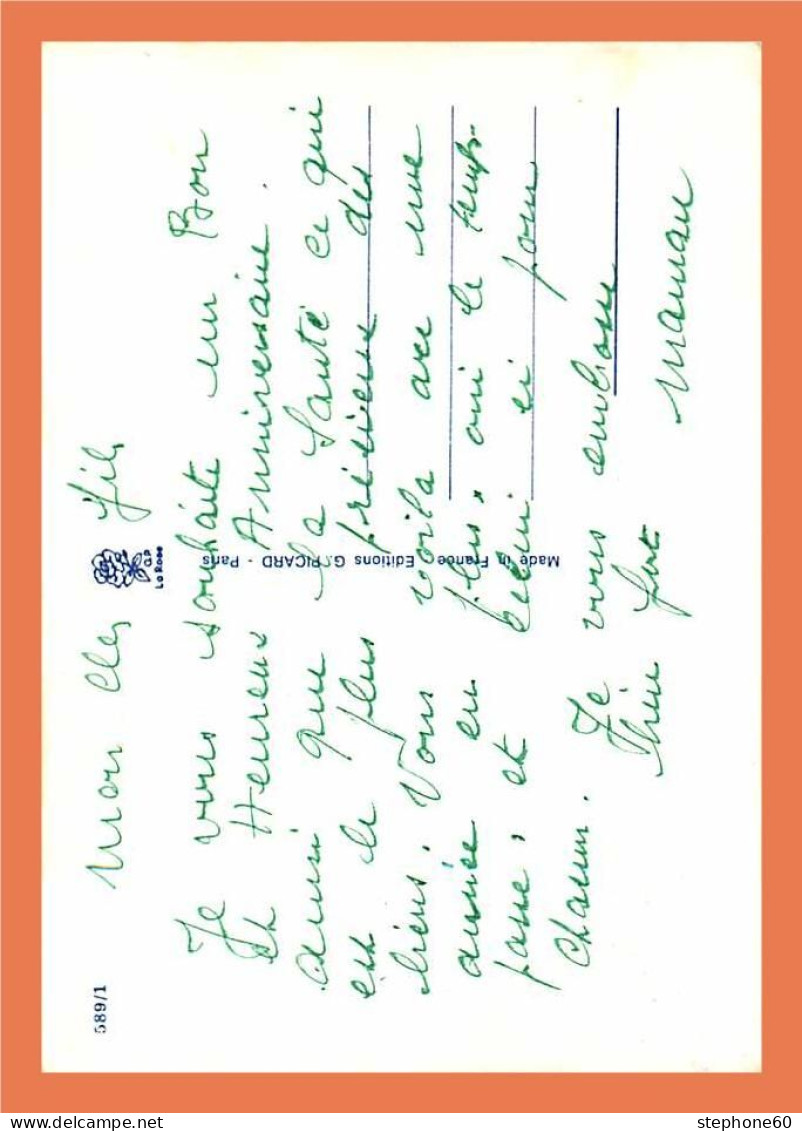 589/1
Mon cher fils
G.P
La Rose
Je vous souhaite un Bon
et Heureux Anniversaire.
ainsi que la Santé ce qui
est le plus précieux des
biens. Vous voila avec une
année en plus, oui le temps
passe, et celui ci pour
chacun. Je vous embrasse
Bien fort
Maman
Made in France, Editions G. PICARD - Paris
stephone60